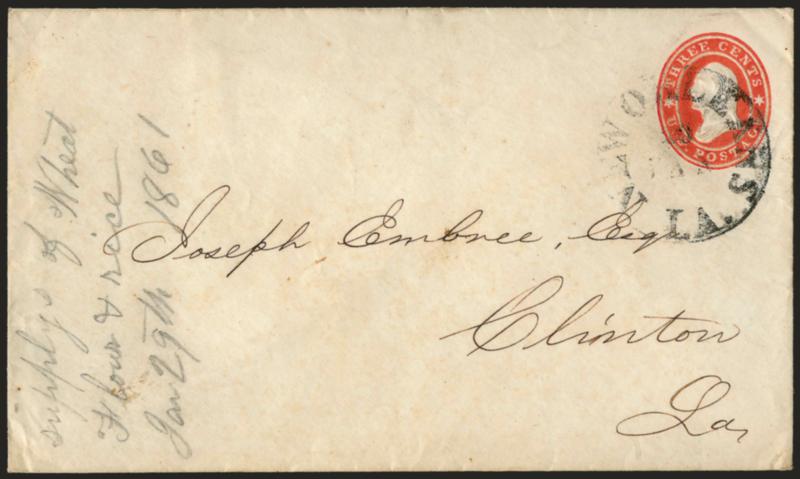 THREE CENTS
U.S. POSTAGE
NEW ORLEANS
LA.
Joseph Embree, Esq
Clinton
La,
supplys of Wheat
Flour & rice
Jan 29th 1861